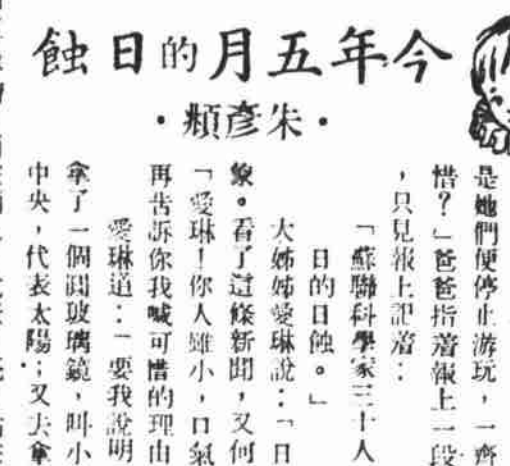 今年五月的日蝕
·朱彥頫·
是她們便停止游玩，一齊
惜？」爸爸指着報上一段
，只見報上記着：
「蘇聯科學家三十人
日的日蝕。」
大姊姊愛琳說：「日
象。看了這條新聞，又何
「愛琳！你人雖小，口氣
再告訴你我喊可惜的理由
愛琳道：「要我說明
拿了一個圓玻璃鏡，叫小
中央，代表太陽；又去拿